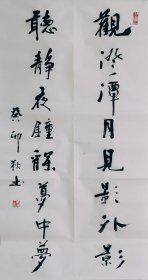 觀澄潭月見影外影
聽靜夜鐘醒夢中夢
癸卯秋書